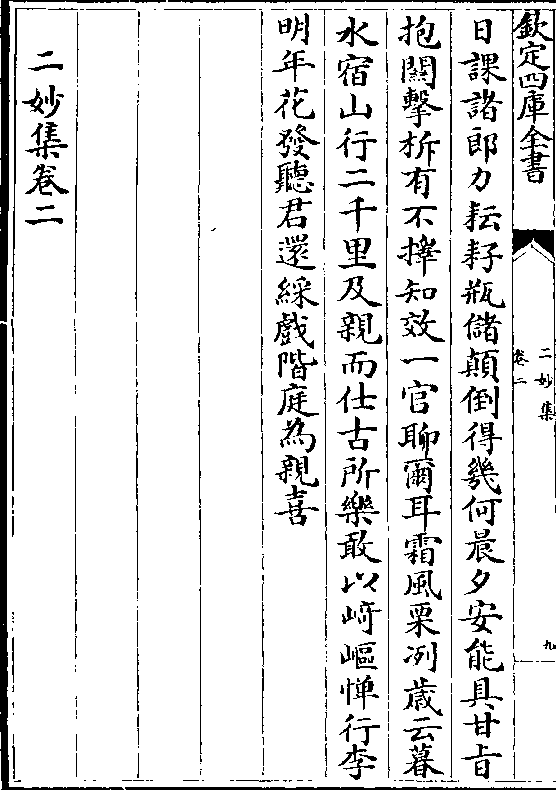 欽定四庫全書
二妙集
卷二
九
日課諸郎力耘耔瓶儲顛倒得幾何晨夕安能具甘旨
抱關擊柝有不擇知效一官聊爾耳霜風栗冽歲云暮
水宿山行二千里及親而仕古所樂敢以崎嶇憚行李
明年花發聽君還綵戲階庭為親喜
二妙集卷二